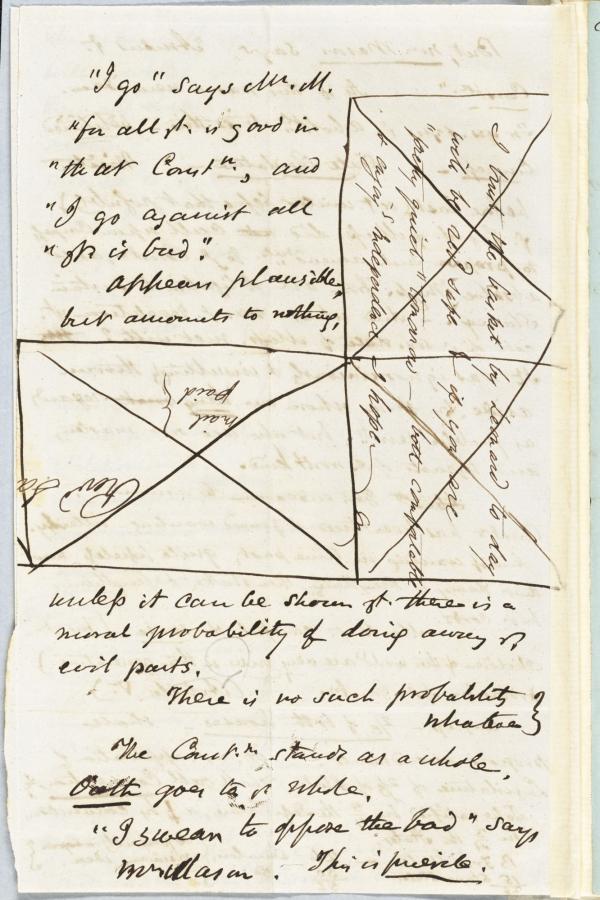 "I go" says Mr. M.
"for all yt. is good in
"that Constn., and
"I go against all
"yt is bad".
appears plausible,
but amounts to nothing,
I trust the basket by Leonard to day
will be recd safe & if you are
"pretty quiet" tomorrow — both comfortable
& enjoy'g independence I hope
paid
Revd Sa
unless it can be shown yt. there is a
moral probability of doing away ye
evil parts.
There is no such probability
whatever }
The Constn. stands as a whole,
Oath goes to ye whole.
"I swear to oppose the bad" says
Mr Mason. This is puerile.